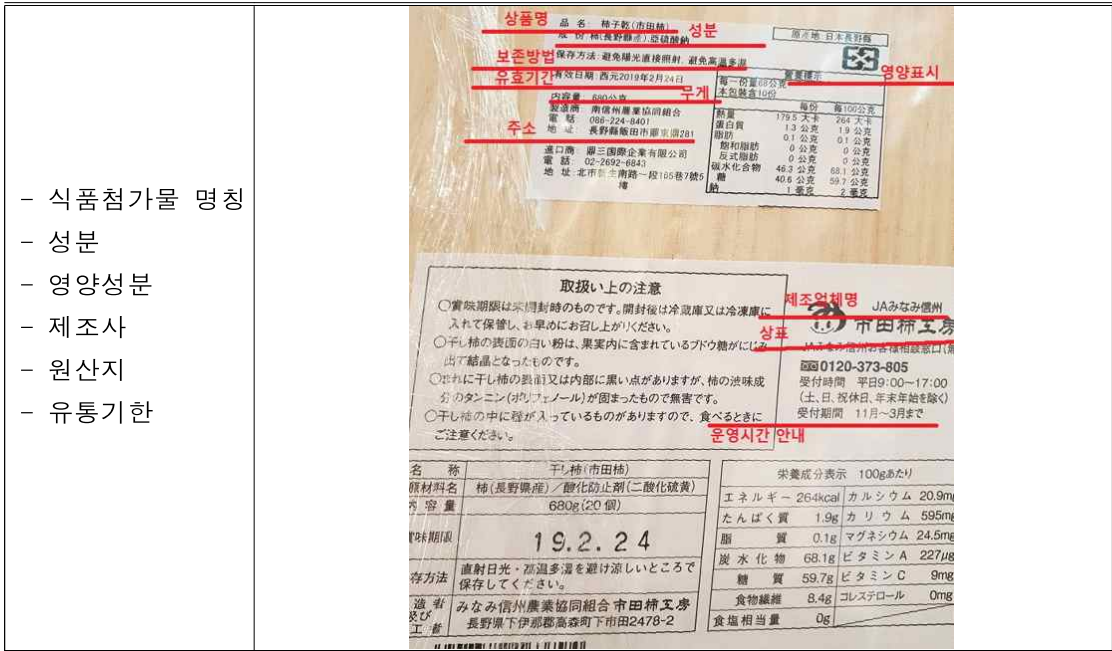 - 식품첨가물 명칭
- 성분
- 영양성분
- 제조사
- 원산지
- 유통기한
상품명
品 名: 柿子乾(市田柿)
성분
成 份:柿(長野縣產).亞硫酸鈉
原產地:日本長野縣
보존방법
保存方法:避免陽光直接照射, 避免高溫多濕
유효기간
有效日期:西元2019年2月24日
영양표시
內容量: 680公克
무게
製造商: 南信州農業協同組合
電 話 086-224-8401
주소
地 址: 長野縣飯田市鼎東鼎281
進口商: 鼎三國際企業有限公司
電 話: 02-2692-6843
地 址:北市新生南路一段165巷7號5樓
營養標示
每一份量68公克
本包裝含10份
每份 每100公克
熱量 179.5 大卡 264 大卡
蛋白質 1.3 公克 1.9 公克
脂肪 0.1 公克 0.1 公克
飽和脂肪 0 公克 0 公克
反式脂肪 0 公克 0 公克
碳水化合物 46.3 公克 68.1 公克
糖 40.6 公克 59.7 公克
鈉 1 毫克 2 毫克
取扱い上の注意
○賞味期限は未開封時のものです。開封後は冷蔵庫又は冷凍庫に
入れて保管し、お早めにお召し上がりください。
○干し柿の表面の白い粉は、果実内に含まれているブドウ糖がにじみ
出て結晶となったものです。
○まれに干し柿の表面又は内部に黒い点がありますが、柿の渋味成
分のタンニン(ポリフェノール)が固まったもので無害です。
○干し柿の中に種が入っているものがありますので、食べるときに
ご注意ください。
제조업체명
JAみなみ信州
市田柿工房
상표
JAみなみ信州お客様相談窓口(無
0120-373-805
受付時間 平日9:00~17:00
(土、日、祝休日、年末年始を除く)
受付期間 11月~3月まで
운영시간 안내
名 称 干し柿(市田柿)
原材料名 柿(長野県産)/酸化防止剤(二酸化硫黄)
内 容 量 680g(20個)
賞味期限 19.2.24
保存方法 直射日光・高温多湿を避け涼しいところで
保存してください。
造 者
及び
工 者
みなみ信州農業協同組合 市田柿工房
長野県下伊那郡高森町下市田2478-2
栄養成分表示 100gあたり
エネルギー 264kcal カルシウム 20.9mg
たんぱく質 1.9g カリウム 595mg
脂 質 0.1g マグネシウム 24.5mg
炭水化物 68.1g ビタミンA 227μg
糖 質 59.7g ビタミンC 9mg
食物繊維 8.4g コレステロール 0mg
食塩相当量 0g